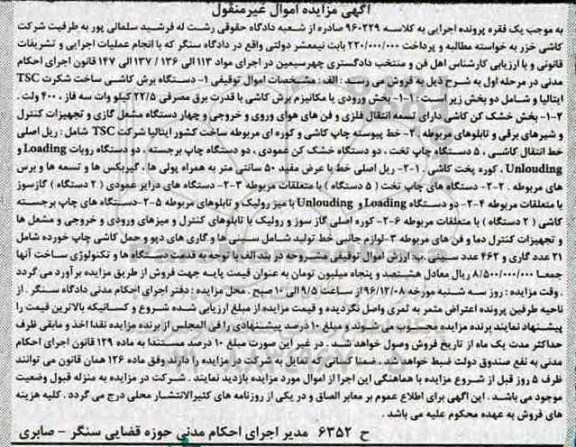 آگهی مزایده اموال غیرمنقول
به موجب یک فقره پرونده اجرایی به کلاسه ۹۶۰۲۲۹ صادره از شعبه دادگاه حقوقی رشت له فرشید سلمانی پور به طرفیت شرکت
کاشی خزر به خواسته مطالبه و پرداخت ۲۲۰/۰۰۰/۰۰۰ بابت نیمعشر دولتی واقع در دادگاه سنگر که با انجام عملیات اجرایی و تشریفات
قانونی و با ارزیابی کارشناس اهل فن و منتخب دادگستری چهرسیمین در اجرای مواد ۱۱۳ الی ۱۳۶ / ۱۳۷ الی ۱۴۷ قانون اجرای احکام
مدنی در مرحله اول به شرح ذیل به فروش می رسند : الف : مشخصات اموال توقیفی ۱- دستگاه برش کاشی ساخت شکرت TSC
ایتالیا و شامل دو بخش زیر است : ۱-۱- بخش ورودی یا مکانیزم برش کاشی با قدرت برق مصرفی ۲۲/۵ کیلو وات سه فاز ، ۴۰۰ ولت .
۱-۲- بخش خشک کن کاشی دارای تسمه انتقال فلزی و فن های هوای وروی و خروجی و چهار دستگاه مشعل گازی و تجهیزات کنترل
و شیرهای برقی و تابلوهای مربوطه . ۲- خط پیوسته چاپ کاشی و کوره ای مربوطه ساخت کشور ایتالیا شرکت TSC شامل : ریل اصلی
خط انتقال کاشی ، ۵ دستگاه چاپ تخت ، دو دستگاه خشک کن عمودی ، دو دستگاه چاپ برجسته . دو دستگاه روبات Loading و
Unlouding ، کوره پخت کاشی . ۲-۱- ریل اصلی خط با عرض مفید ۵۰ سانتی متر به همراه پولی ها ، گیربکس ها و تسمه ها و برس
های مربوطه . ۲-۲- دستگاه های چاپ تخت ( ۵ دستگاه ) با متعلقات مربوطه ۲-۳- دستگاه های درایر عمودی ( ۲ دستگاه ) گازسوز
با متعلقات مربوطه ۲-۴- دو دستگاه Loading و Unlouding با میز رولیک و تابلوهای مربوطه ۲-۵- دستگاه های چاپ برجسته
کاشی ( ۲ دستگاه ) با متعلقات مربوطه ۲-۶- کوره اصلی گاز سوز و رولیک با تابلوهای کنترل و میزهای ورودی و خروجی و مشعل ها
و تجهیزات کنترل دما و فن های مربوطه ۳- لوازم جانبی خط تولید شامل سینی ها و گاری های دپو و حمل کاشی چاپ خورده شامل
۲۱ عدد گاری و ۴۶۲ عدد سینی .ب: ارزش اموال توقیفی مشروحه در بند الف با توجه به قدمت دستگاه ها و تکنولوژی ساخت آنها
جمعا ۸/۵۰۰/۰۰۰/۰۰۰ ریال معادل هشتصد و پنجاه میلیون تومان به عنوان قیمت پایه جهت فروش از طریق مزایده برآورد می گردد
. وقت مزایده : روز سه شنبه مورخه ۹۶/۱۲/۰۸ از ساعت ۹/۵ الی ۱۰ صبح . محل مزایده : دفتر اجرای احکام مدنی دادگاه سنگر . از
ناحیه طرفین پرونده اعتراض مثمر به ثمری واصل نگردیده و قیمت مزایده از مبلغ ارزیابی شده شروع و کسانیکه بالاترین قیمت را
پیشنهاد نمایند برنده مزایده محسوب می شوند و مبلغ ۱۰ درصد پیشنهادی را فی المجلس از برنده مزایده نقدا اخذ و مابقی ظرف
حداکثر مدت یک ماه از تاریخ فروش وصول خواهد شد . در غیر این صورت مبلغ ۱۰ درصد مستندا به ماده ۱۲۹ قانون اجرای احکام
مدنی به نفع صندوق دولت ضبط خواهد شد . ضمنا کسانی که تمایل به شرکت در مزایده را دارند وفق ماده ۱۲۶ همان قانون می توانند
ظرف ۵ روز قبل از شروع مزایده با هماهنگی این اجرا از اموال مورد مزایده بازدید نمایند . شرکت در مزایده به منزله قبول وضعیت
موجود می باشد . این آگهی برای اطلاع عموم بر معابر الصاق و در یکی از روزنامه های کثیرالانتشار محلی درج می گردد . کلیه هزینه
های فروش به عهده محکوم علیه می باشد .
ح ۶۳۵۲ مدیر اجرای احکام مدنی حوزه قضایی سنگر – صابری